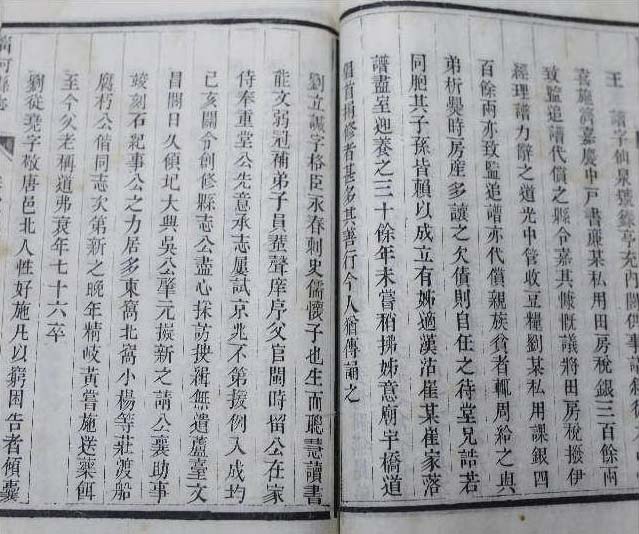 王譜字仙泉號鏡亭充內閣供事議
袁施濟嘉慶中戶書廉某私用田房稅銀三百餘兩
致監追譜代償之縣令嘉其慷慨議將田房稅撥伊
經理譜力辭之道光中管收豆糧劉某私用課銀四
百餘兩亦致監追譜亦代償親族貧者輒周給之與
弟析爨時房產多讓之欠債則自任之待堂兄誥若
同胞其子孫皆賴以成立有姊適漢沽崔某崔家落
譜盡室迎養之三十餘年未嘗稍拂姊意廟宇橋道
倡首捐修者甚多其善行今人猶傳誦之
劉立誠字格臣永春刺史儒懷子也生而聰慧讀書
能文弱冠補弟子員蜚聲庠序父官閩時留公在家
侍奉重堂公先意承志屢試京兆不第援例入成均
已亥閣令創修縣志公盡心採訪搜緝無遺蘆臺文
昌閣日久傾圮大興吳公肇元擬新之請公襄助事
竣刻石紀事公之力居多東窩北窩小楊等莊渡船
腐朽公偕同志次第新之晚年精岐黃嘗施送藥餌
至今父老稱道弗衰年七十六卒
劉從堯字敬唐邑北人性好施凡以窮困告者傾囊